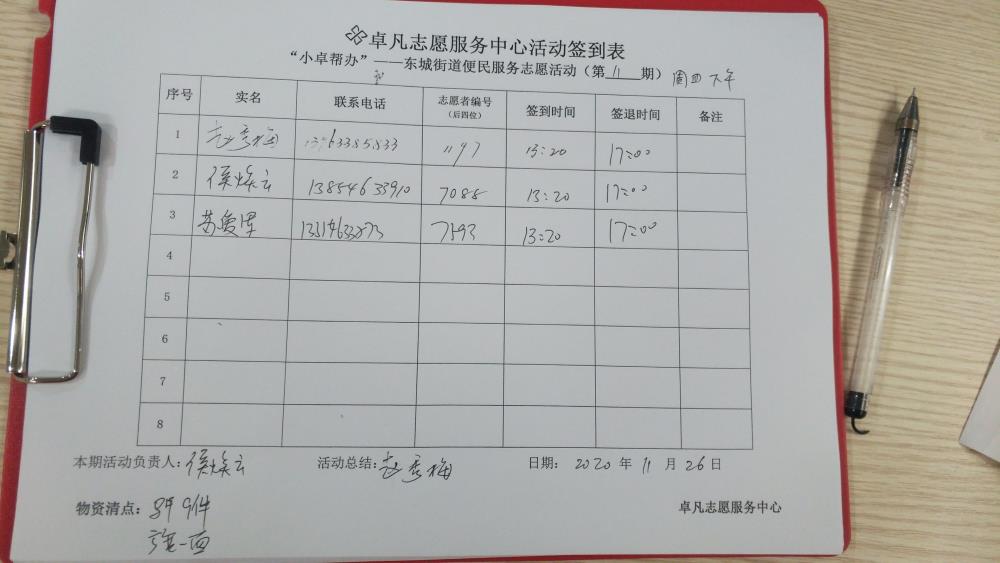 卓凡志愿服务中心活动签到表
“小卓帮办”——东城街道便民服务志愿活动（第 11 期） 周四下午
序号 实名 联系电话 志愿者编号（后四位） 签到时间 签退时间 备注
1 赵秀梅 1197 13:20 17:00
2 侯焕云 13854633910 7085 13:20 17:00
3 苏爱 7593 13:20 17:00
4
5
6
7
8
本期活动负责人：侯焕云 活动总结：赵秀梅 日期：2020 年 11 月 26 日
物资清点： 9件
一面
卓凡志愿服务中心